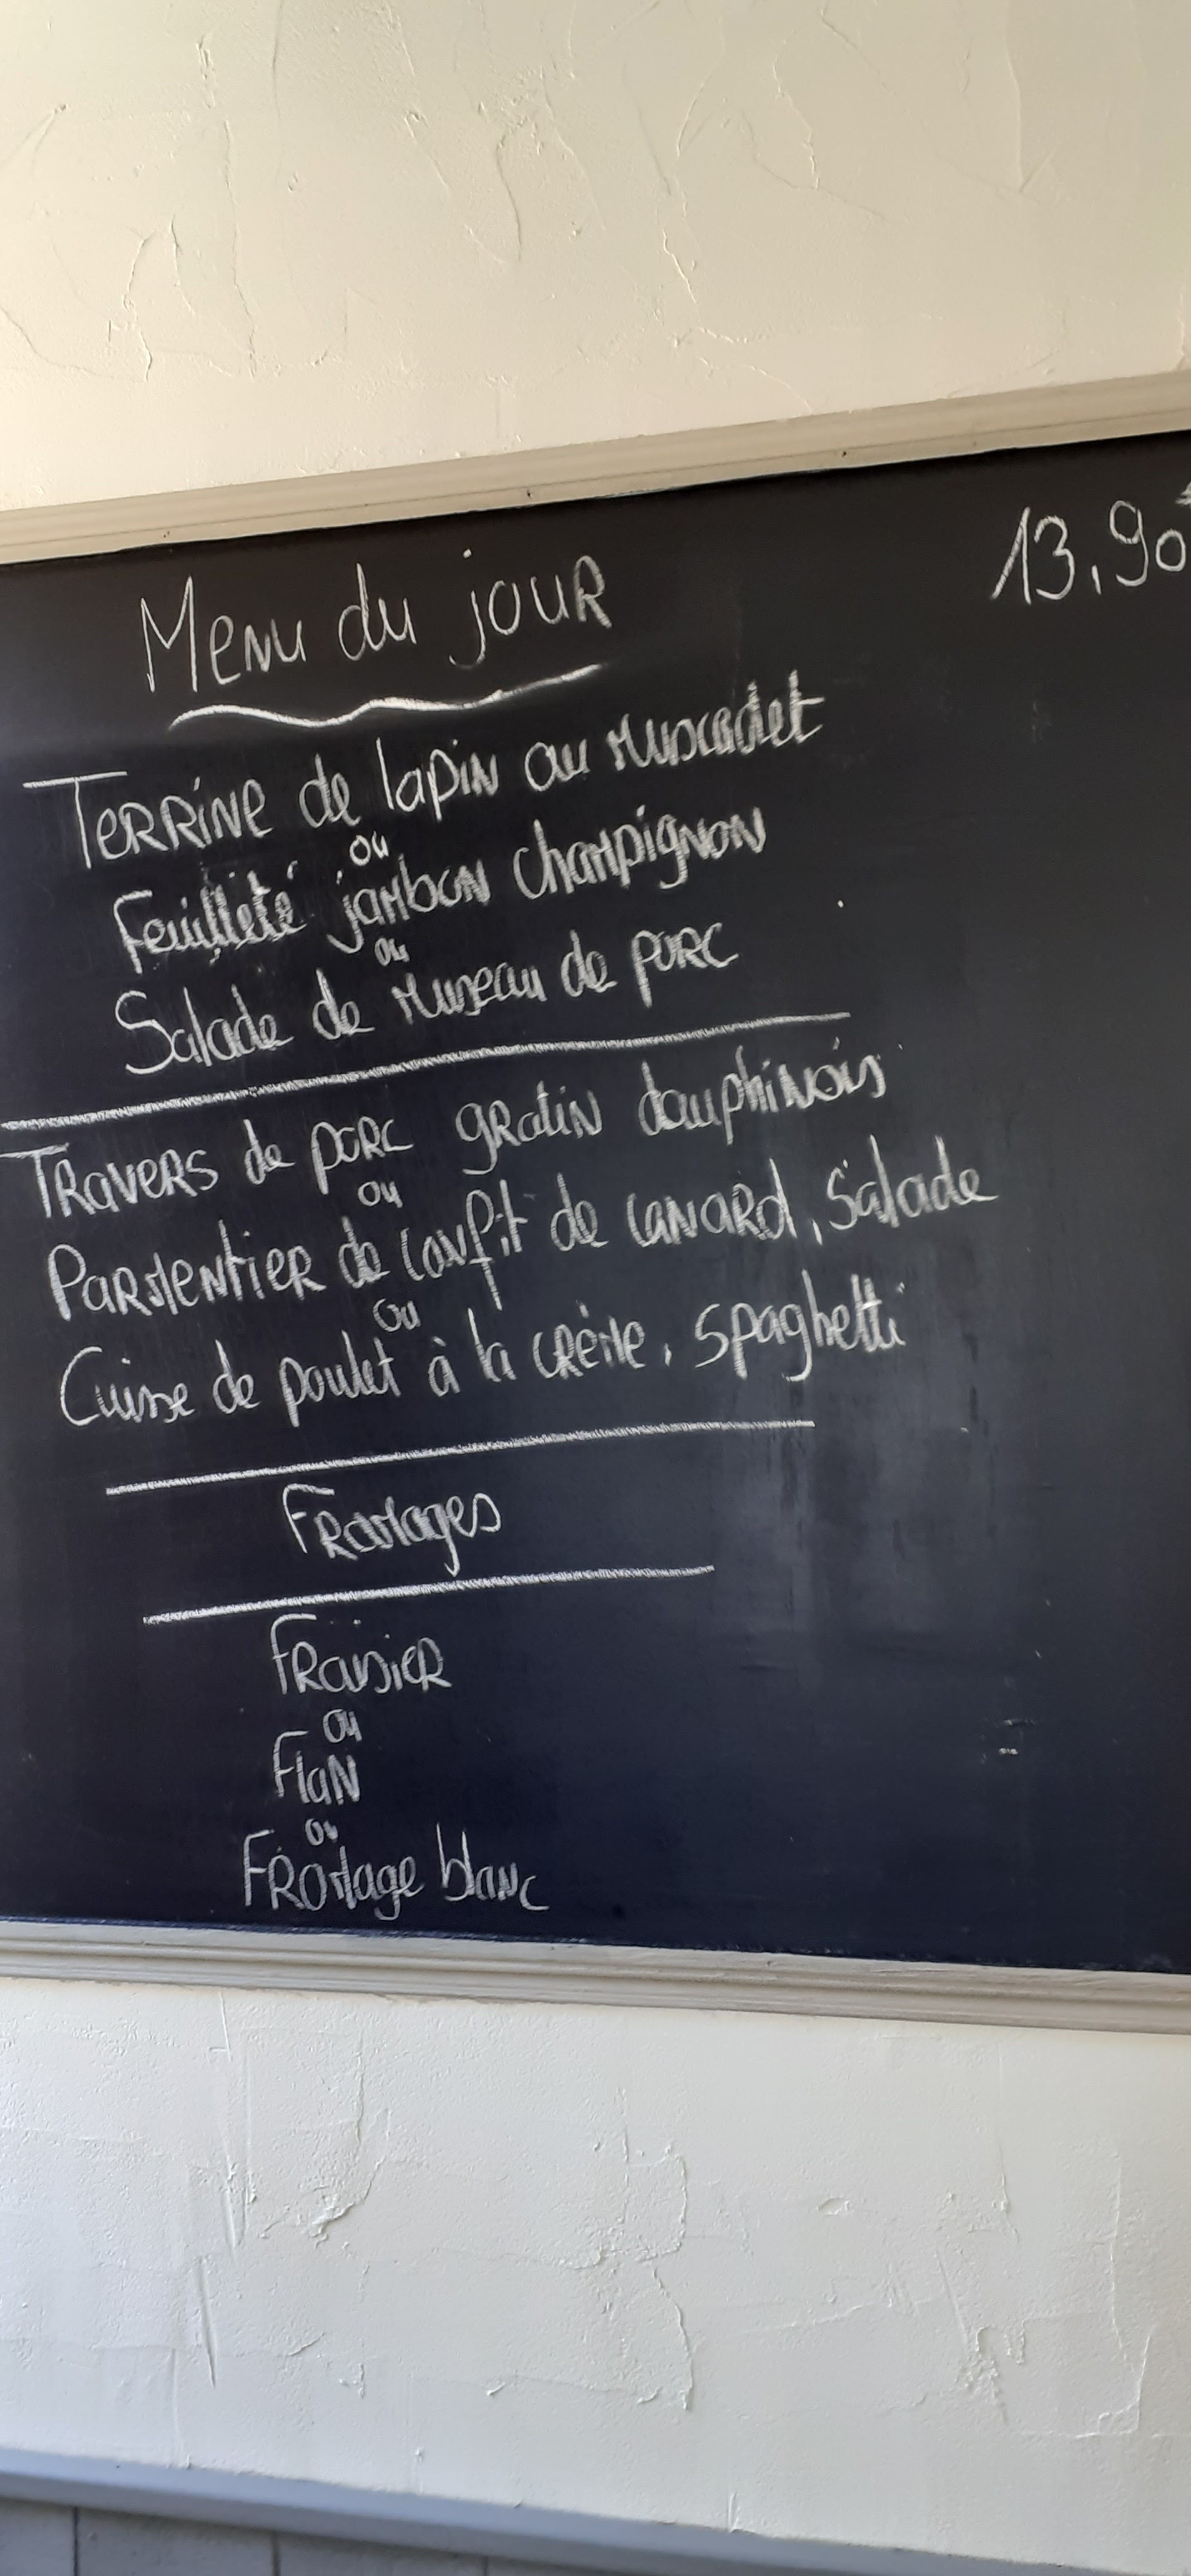 Menu du jour
13,90
Terrine de lapin au Muscadet
ou
Feuilleté jambon champignon
ou
Salade de Museau de porc
Travers de porc gratin dauphinois
ou
Parmentier de confit de canard, Salade
ou
Cuisse de poulet à la crème, spaghetti
Fromages
Fraisier
ou
Flan
ou
Fromage blanc